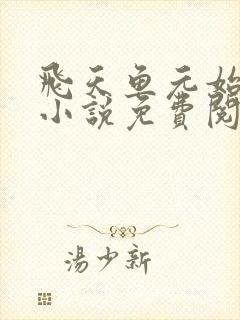 飛天鱼元始
小說免費閱
湯少新